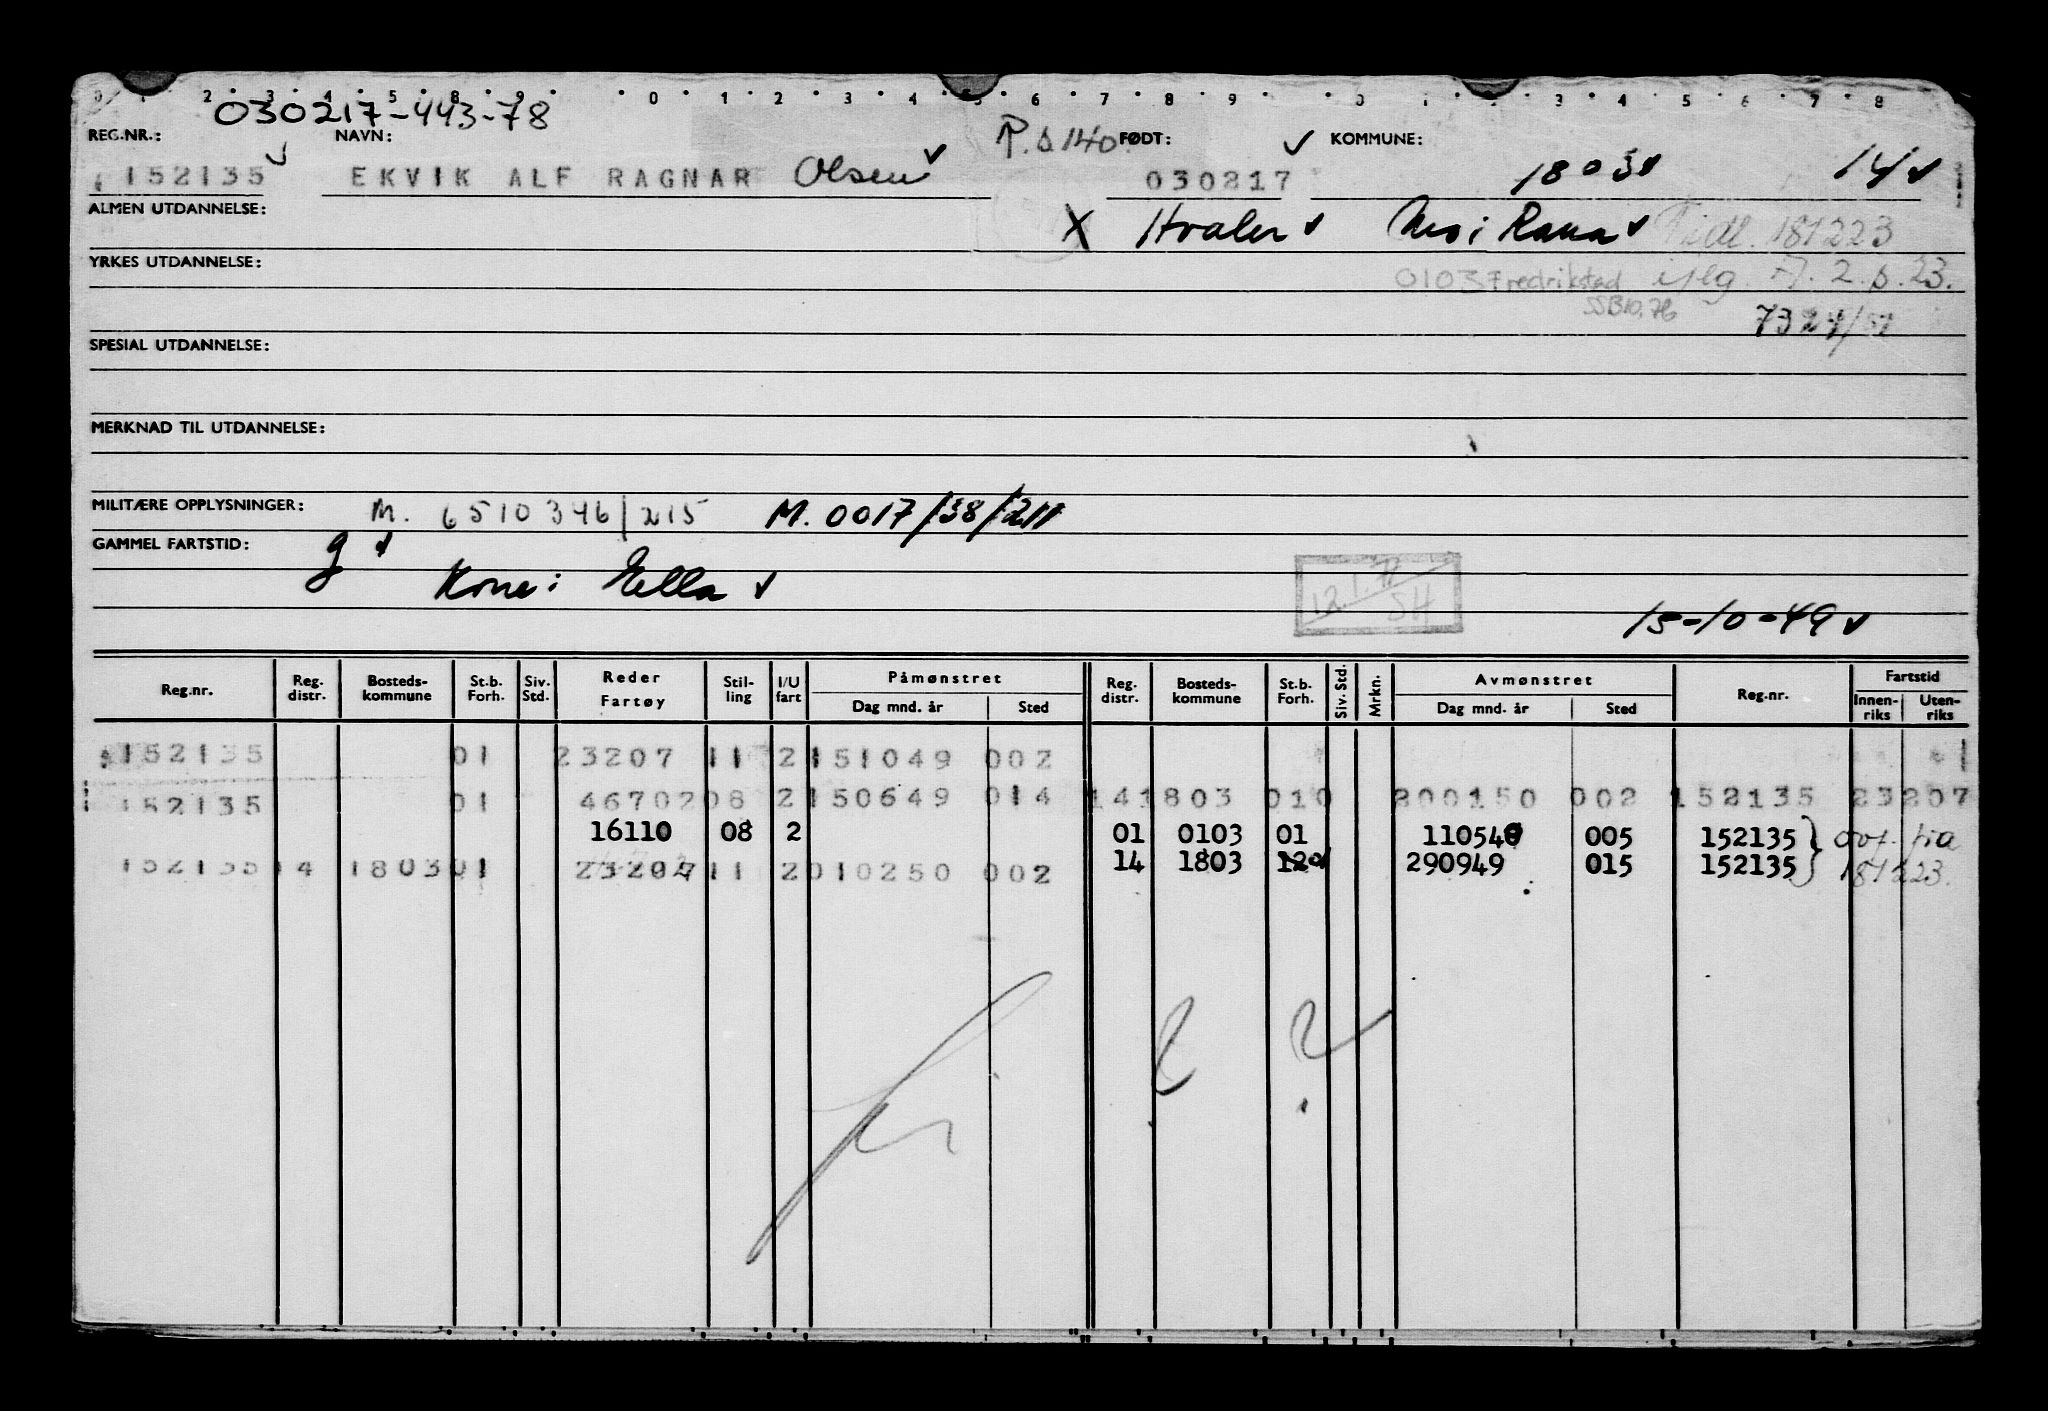 030217-443-78
REG.NR.: NAVN: P.s 140 FØDT: KOMMUNE:
152135 EKVIK ALF RAGNAR Olsen 030217 1803 14
ALMEN UTDANNELSE: X Hvaler Nes i Rana Tidl. 181223
YRKES UTDANNELSE: 0103 Fredrikstad iflg. A. 2. s. 23.
SSB10.76 7324/51
SPESIAL UTDANNELSE:
MERKNAD TIL UTDANNELSE:
MILITÆRE OPPLYSNINGER: M. 6510346/215 M. 0017/38/211
GAMMEL FARTSTID: g
Kone: Ella
SH
15-10-49
Reg.nr. Reg. distr. Bosteds-kommune St.b. Forh. Siv. Std. Reder Fartøy Stil-ling I/U fart Påmønstret Dag mnd. år Sted Reg. distr. Bosteds-kommune St.b. Forh. Siv. Std. Mrkn. Avmønstret Dag mnd. år Sted Reg.nr. Fartstid Innen-riks Uten-riks
152135 01 23207 11 2 151049 002
152135 01 46702 08 2 150649 014 14 1803 010 200150 002 152135 23207
16110 08 2 01 0103 01 110540 005 152135 ovf. fra
152135 14 1803 01 23207 11 2 010250 002 14 1803 290949 015 152135 181223.